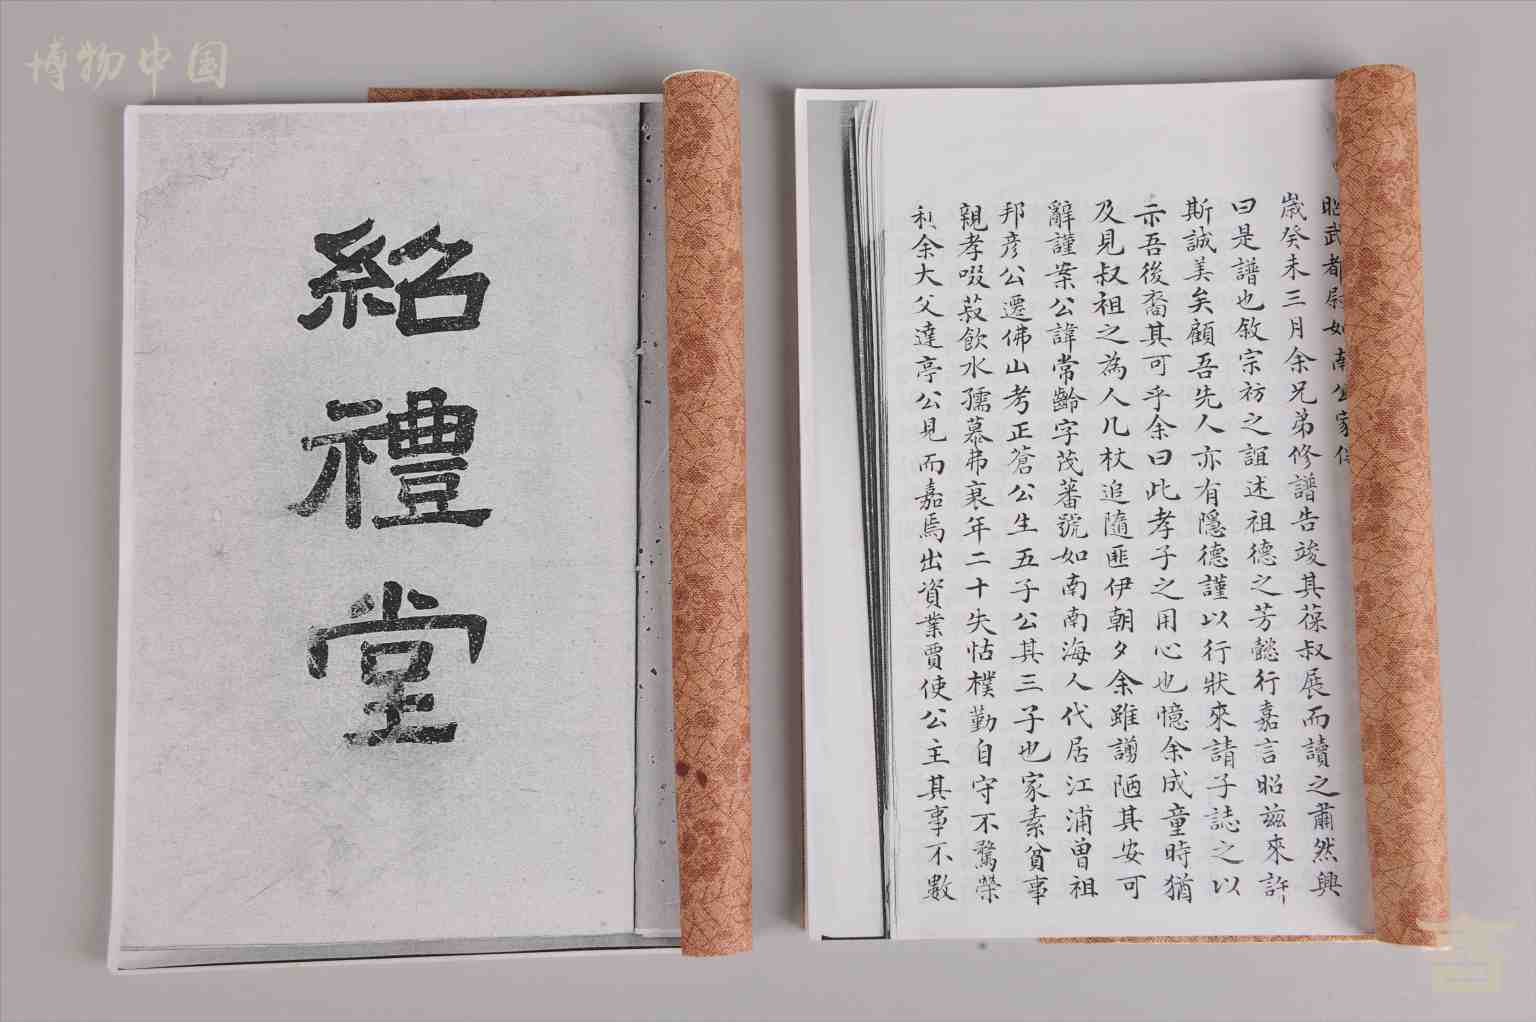 博物中国
紹禮堂
昭武都尉如南公家
歲癸未三月余兄弟修譜告竣其葆叔展而讀之肅然興
曰是譜也敘宗祊之誼述祖德之芳懿行嘉言昭茲來許
斯誠美矣顧吾先人亦有隱德謹以行狀來請子誌之以
示吾後裔其可乎余曰此孝子之用心也憶余成童時猶
及見叔祖之為人几杖追隨匪伊朝夕余雖謭陋其安可
辭謹案公諱常齡字茂蕃號如南南海人代居江浦曾祖
邦彥公遷佛山考正蒼公生五子公其三子也家素貧事
親孝啜菽飲水孺慕弗衰年二十失怙樸勤自守不騖榮
利余大父達亭公見而嘉焉出資業賈使公主其事不數